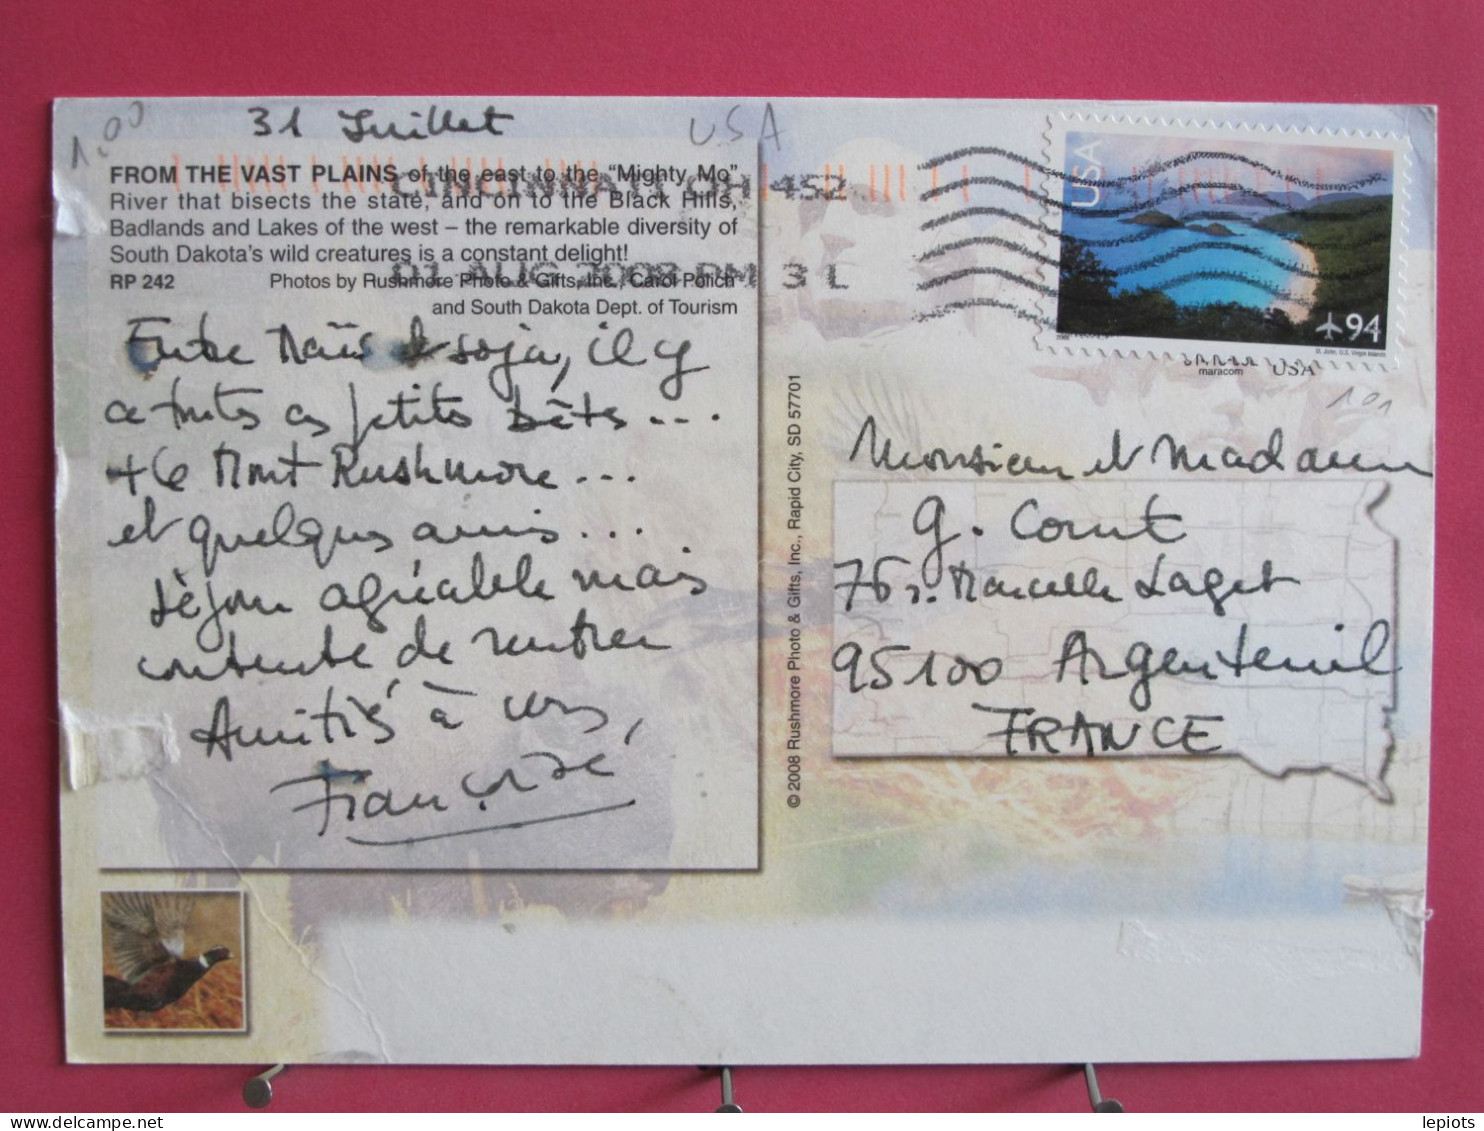 1.00
31 Juillet
USA
FROM THE VAST PLAINS of the east to the "Mighty Mo"
River that bisects the state, and on to the Black Hills,
Badlands and Lakes of the west – the remarkable diversity of
South Dakota's wild creatures is a constant delight!
RP 242 Photos by Rushmore Photo & Gifts, Inc., Carol Polich
and South Dakota Dept. of Tourism
CINCINNATI OH 452
01 AUG 2008 PM 3 L
Entre Maïs et soja, il y
a toutes ces petites bêtes...
+ le Mont Rushmore...
et quelques amis...
Séjour agréable mais
contente de rentrer
Amitiés à vous,
Françoise
© 2008 Rushmore Photo & Gifts, Inc., Rapid City, SD 57701
USA
94
St. John, U.S. Virgin Islands
2008
maracom USA
101
Monsieur et Madame
G. Comt
75 r. Marcelle Laget
95100 Argenteuil
FRANCE
lepiots